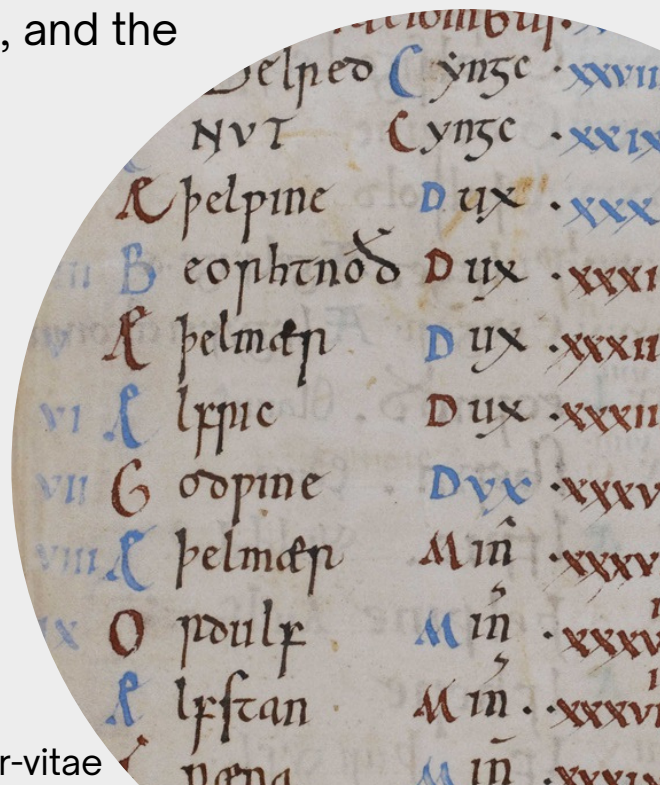 , and the
Cyngc · xxvii
NVT Cyngc · xxix
Æþelƿine Dux · xxx
Beorhtnoð Dux · xxxi
Æþelmær Dux · xxxii
Ælfric Dux · xxxii
vi
vii Godƿine Dvx · xxxv
viii Æþelmær Min̄ xxxv
ix Ordulf Min̄ · xxxv
Ælfstan Min̄ · xxxvi
r-vitae